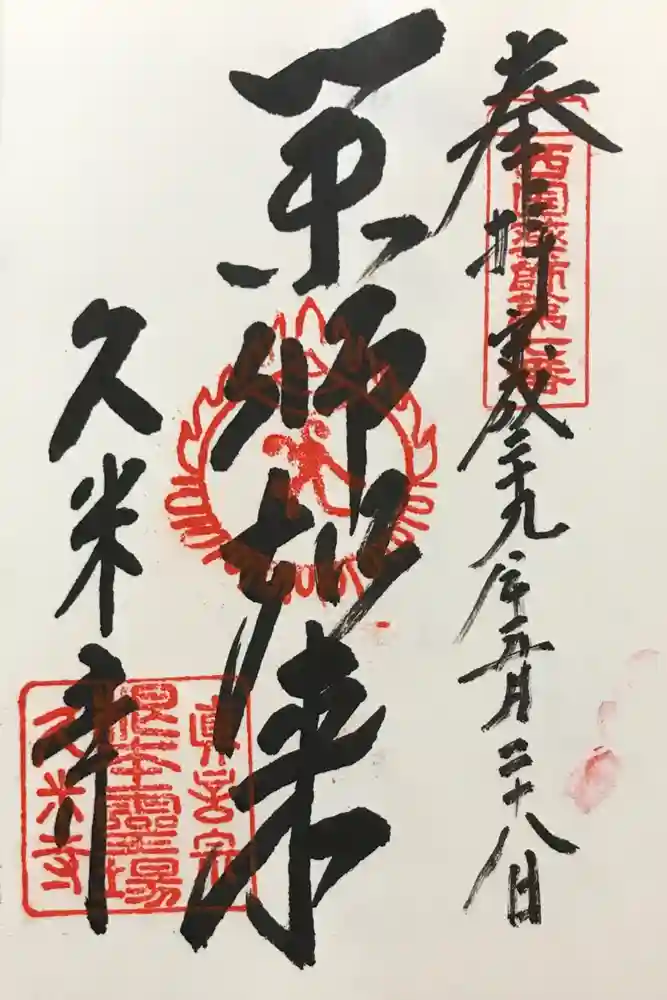 奉拝 平成二十九年五月二十八日
西国薬師第七番
薬師如来
久米寺
眞言宗
根本靈場
久米寺